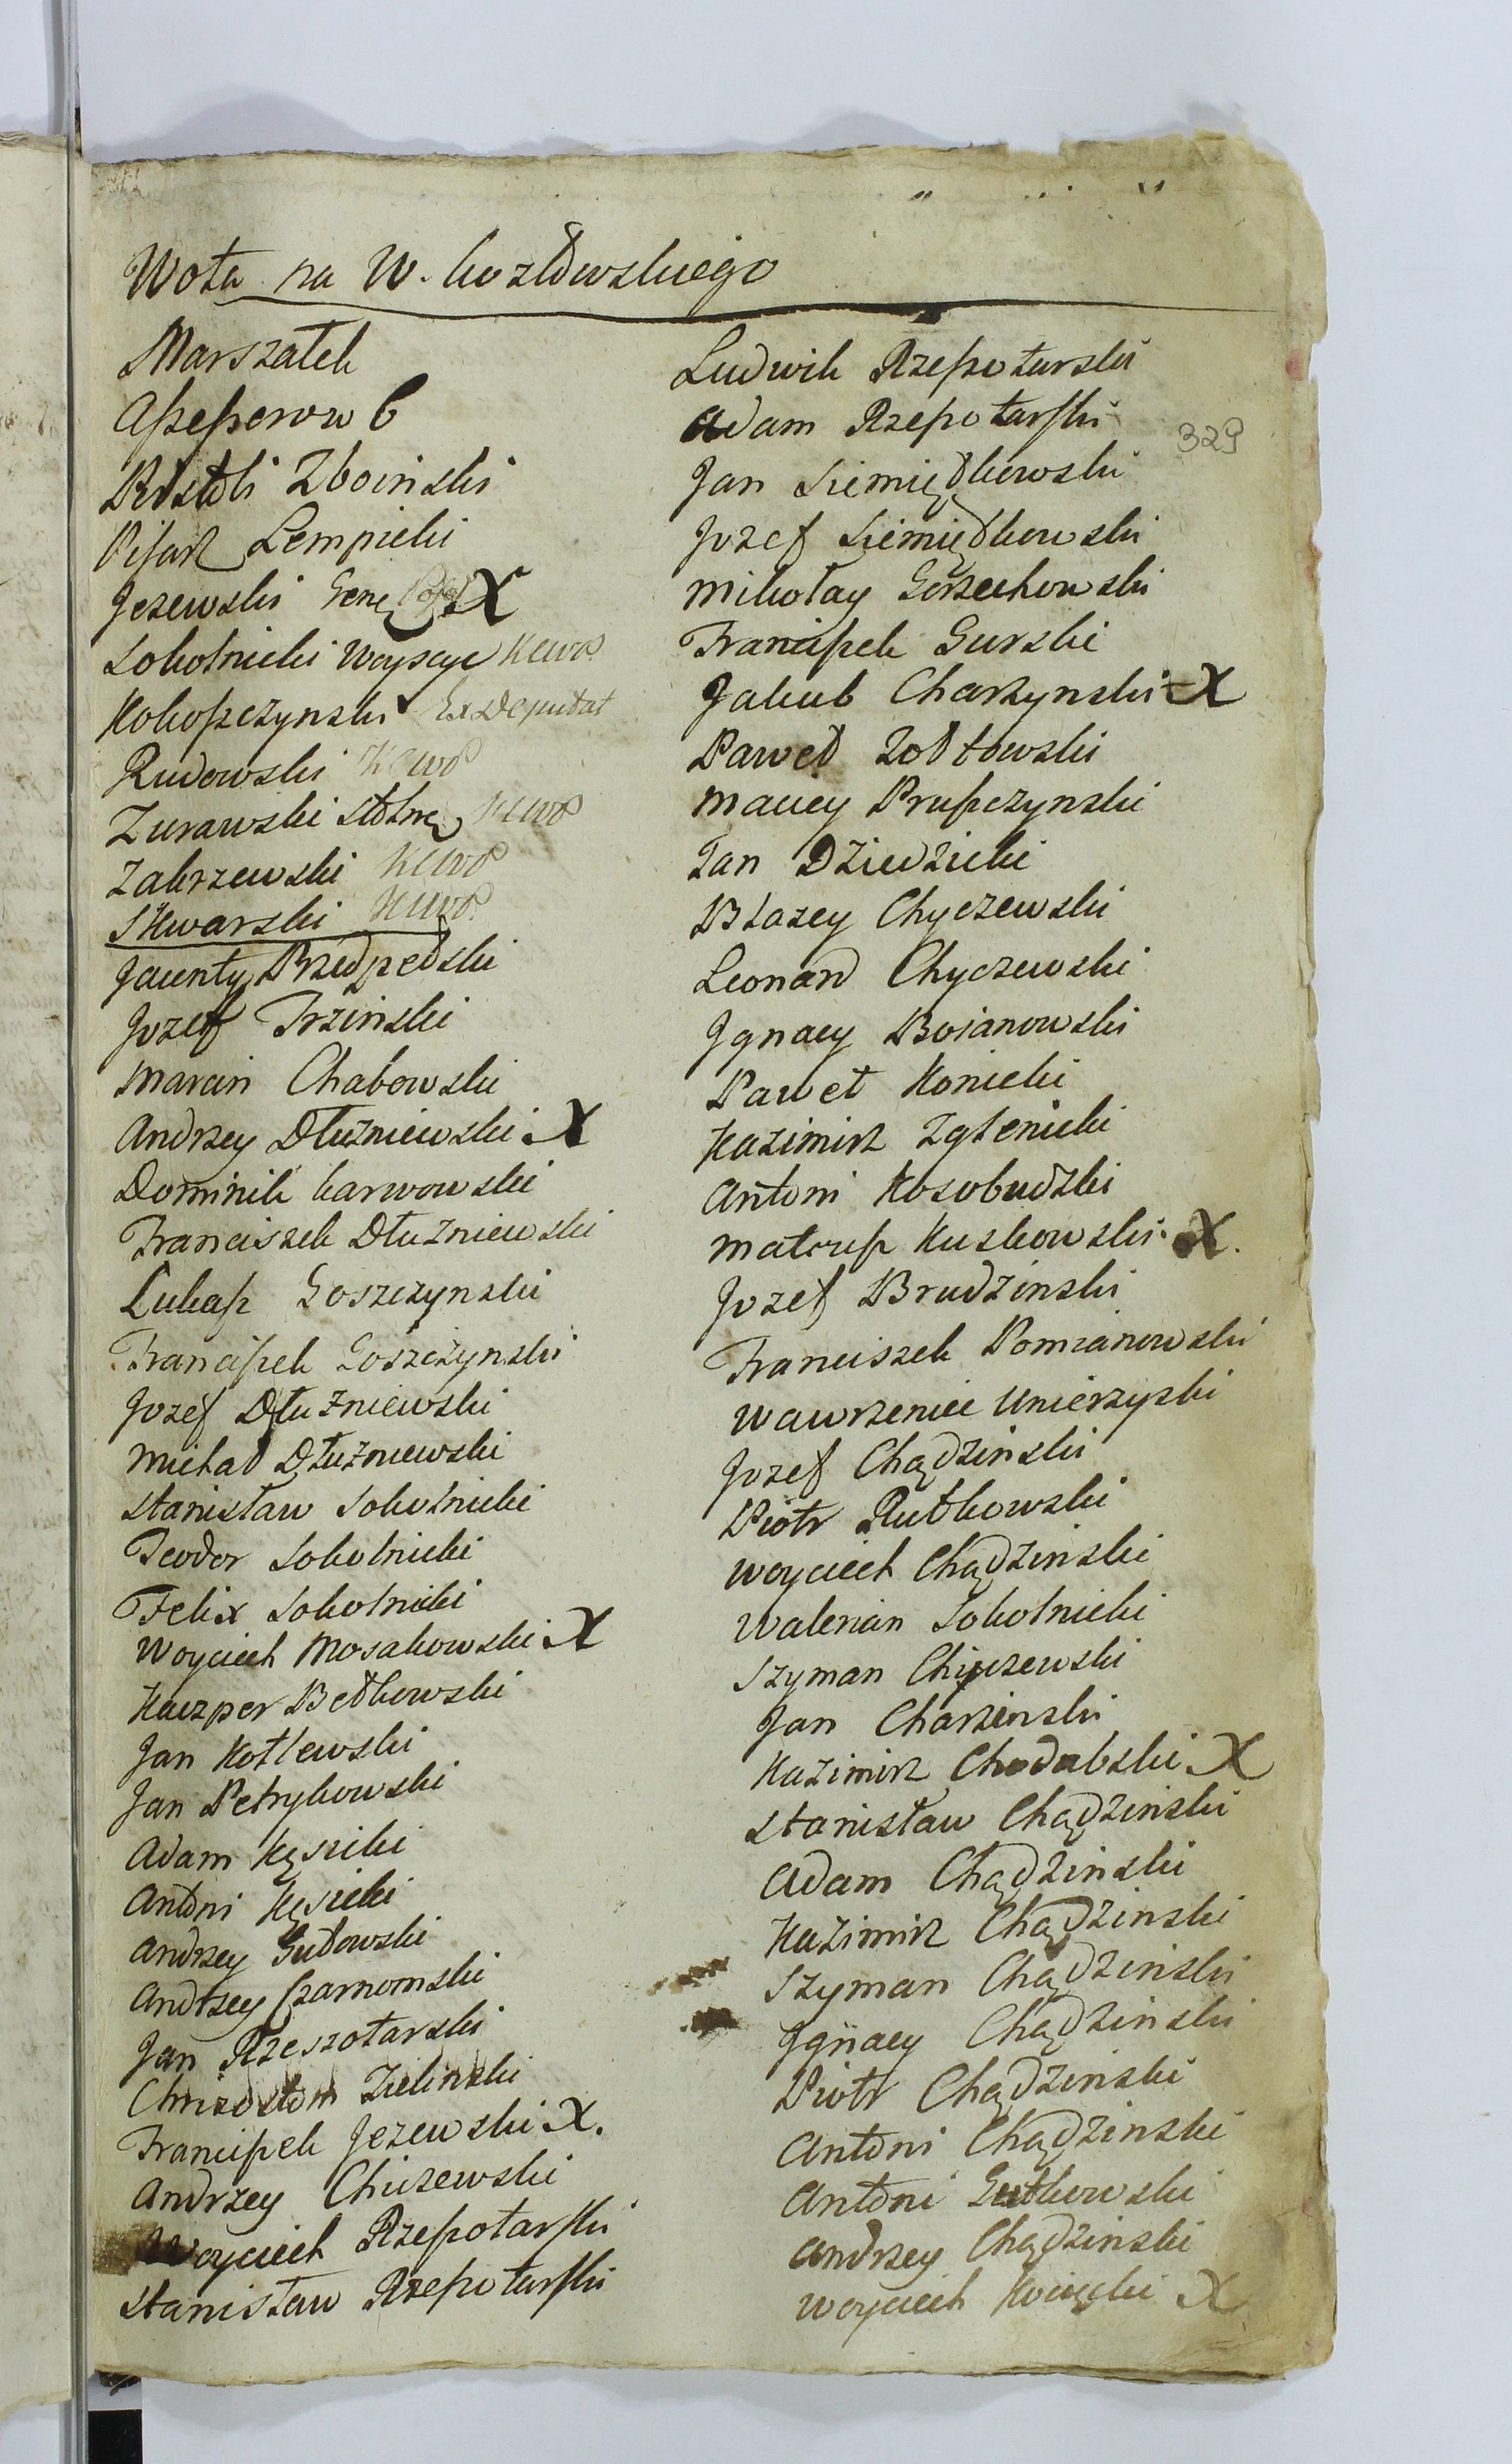 Wota na W. Kozłowskiego
Marszałek
Assessorow 6
Podstoli Zboinski
Pisarz Lempicki
Jezewski Gene Posel X
Sokolnicki Woyscye Kcwo
Kokoszczynski ExDeputat
Rudowski Kcwo
Zurawski Stolni Kcwo
Zakrzewski Kcwo
Skwarski Kcwo
Jacenty Przedpełski
Jozef Trzinski
Marcin Chabowski
Andrzey Dłuzniewski X
Dominik Karwowski
Franciszek Dłuzniewski
Łukasz Goszczynski
Franciszek Goszczynski
Jozef Dłuzniewski
Michał Dłuzniewski
Stanisław Sokolnicki
Teodor Sokolnicki
Felix Sokolnicki
Woyciech Mosakowski X
Kaczper Bętkowski
Jan Kotlewski
Jan Petrykowski
Adam Kęsicki
Antoni Kęsicki
Andrzey Gutowski
Andrzey Czarnomski
Jan Rzeszotarski
Chrizostom Zielinski
Franciszek Jezewski X.
Andrzey Chiczewski
Woyciech Rzeszotarski
Stanisław Rzeszotarski
Ludwik Rzeszotarski
Adam Rzeszotarski
329
Jan Siemiądkowski
Jozef Siemiądkowski
Mikołay Gorzechowski
Franciszek Gurski
Jakub Charzynski X
Paweł Zołtowski
Maciey Pruszczynski
Jan Dziedzicki
Błazey Chyczewski
Leonard Chyczewski
Ignacy Boianowski
Paweł Konicki
Kazimirz Zglenicki
Antoni Kosobudzki
Mateusz Kuskowski X.
Jozef Brudzinski
Franciszek Pomianowski
Wawrzeniec Unierzyski
Jozef Chądzinski
Piotr Rutkowski
Woyciech Chądzinski
Walerian Sokolnicki
Szyman Chyczewski
Jan Charzinski
Kazimirz Chodubski X
Stanisław Chądzinski
Adam Chądzinski
Kazimirz Chądzinski
Szyman Chądzinski
Ignacy Chądzinski
Piotr Chądzinski
Antoni Chądzinski
Antoni Gutkowski
Andrzey Chądzinski
Woyciech Kocięcki X